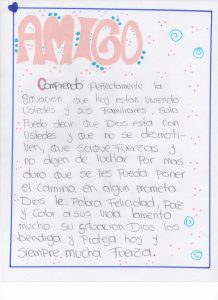 AMIGO
Comprendo perfectamente la
Situación que hoy estan viviendo
Ustedes y sus Familiares, solo
Puedo decir que Dios esta con
Ustedes y que no se desmoti-
ven, que Saque Fuerzas y
no dejen de luchar Por mas
duro que se les Pueda Poner
el Camino en algun momento
Dios le Podra Felicidad, Paz
y Color a sus vida lamento
mucho su situacion Dios los
bendiga y Proteja hoy y
Siempre, mucha Fuerza.